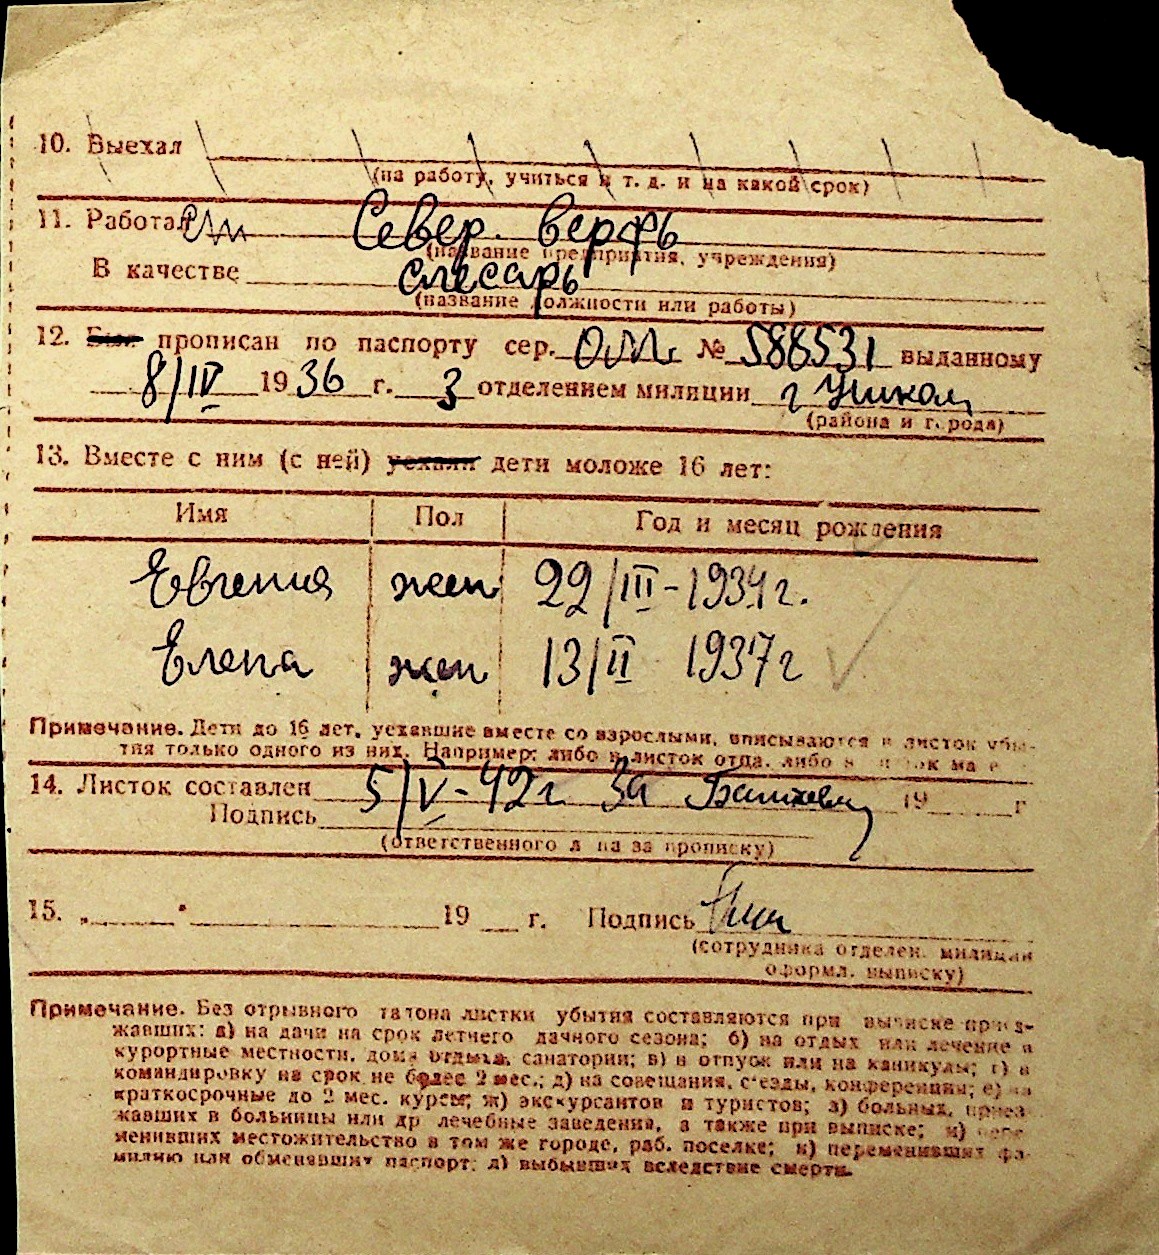 10. Выехал
(на работу, учиться и т. д. и на какой срок)
11. Работал Север. верфь
(название предприятия, учреждения)
В качестве слесарь
(название должности или работы)
12. Был прописан по паспорту сер. № 588531 выданному
8/IV 1936 г. 3 отделением милиции г
(района и города)
13. Вместе с ним (с ней) уехали дети моложе 16 лет:
Имя Пол Год и месяц рождения
Евгения жен 22/III-1934 г.
Елена жен 13/II 1937 г
Примечание. Дети до 16 лет, уехавшие вместе со взрослыми, вписываются в листок убы-
тия только одного из них. Например: либо в листок отца, либо в листок ма
14. Листок составлен 5/V-42 г. За 19 г
Подпись
(ответственного лица за прописку)
15. „ " 19 г. Подпись
(сотрудника отделен. милиции
оформл. выписку)
Примечание. Без отрывного талона листки убытия составляются при выписке приез-
жавших: а) на дачи на срок летнего дачного сезона; б) на отдых или лечение в
курортные местности, дома отдыха, санатории; в) в отпуск или на каникулы; г) в
командировку на срок не более 2 мес.; д) на совещания, съезды, конференции; е) на
краткосрочные до 2 мес. курсы; ж) экскурсантов и туристов; з) больных, приез-
жавших в больницы или др лечебные заведения, а также при выписке; и) пере-
менивших местожительство в том же городе, раб. поселке; к) переменивших фа-
милию или обменявших паспорт; л) выбывших вследствие смерти.